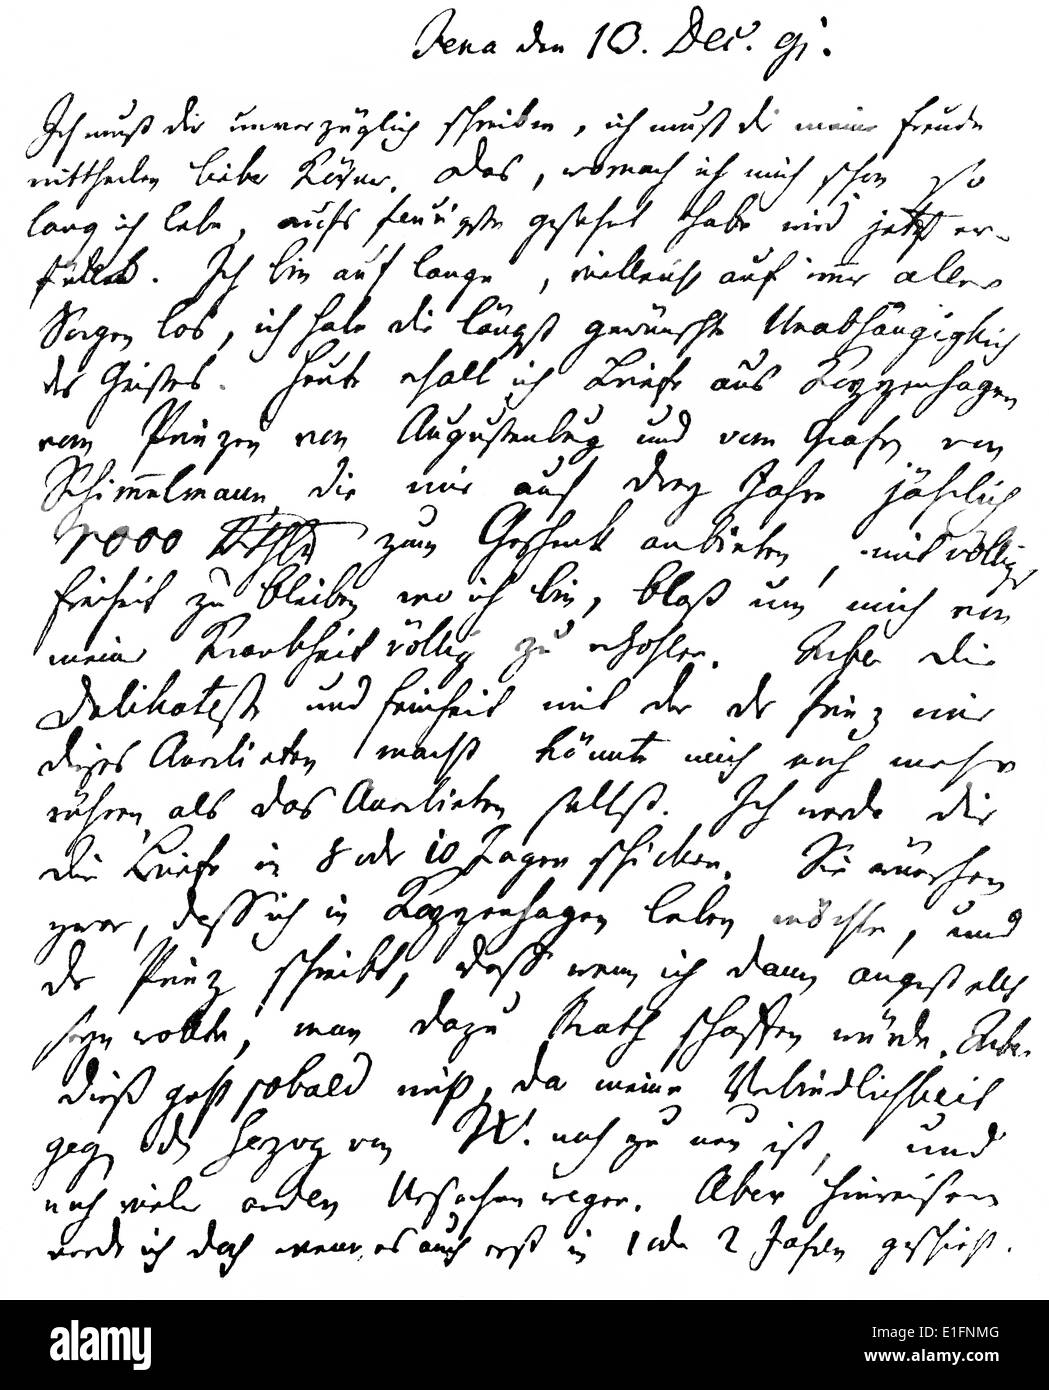 Jena den 13. Dec. 91.
Ich muß dir unverzüglich schreiben, ich muß dir meine Freude
mittheilen lieber Körner. Das, wornach ich mich schon so
lang ich lebe, aufs feurigste gesehnt habe wird jetzt er-
füllt. Ich bin auf lange, vielleicht auf immer aller
Sorgen los, ich habe die längst gewünschte Unabhängigkeit
des Geistes. Heute erhalt ich Briefe aus Koppenhagen
vom Prinzen von Augustenburg und vom Grafen von
Schimmelmann, die mir auf drey Jahre jährlich
1000 Rthlr zum Geschenk anbieten, mit völliger
Freiheit zu bleiben wo ich bin, bloß um mich von
meiner Krankheit völlig zu erhohlen. Aber die
Delikatesse und Feinheit mit der der Prinz mir
dieses Anerbieten macht könnte mich noch mehr
rühren, als das Anerbieten selbst. Ich werde dir
die Briefe in 8 oder 10 Tagen schicken. Sie wünschen
zwar, dass ich in Koppenhagen leben möchte, und
der Prinz schreibt, dass wenn ich dann angestellt
seyn wollte, man dazu Rath schaffen würde. Aber
dieß geht sobald nicht, da meine Verbindlichkeit
gegen den Herzog von W. noch zu neu ist, und
noch vieler andern Ursachen wegen. Aber hinreisen
werde ich doch wenn es auch erst in 1 oder 2 Jahren geschieht.
alamy
E1FNMG
www.alamy.com